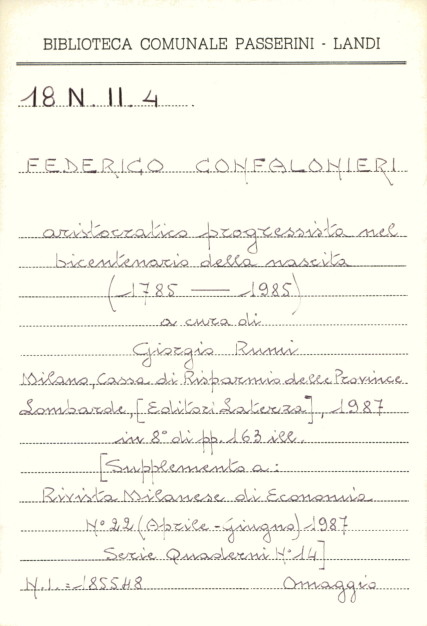 BIBLIOTECA COMUNALE PASSERINI - LANDI
18 N. II. 4
FEDERICO CONFALONIERI
aristocratico progressista nel
bicentenario della nascita
(1785 — 1985)
a cura di
Giorgio Rumi
Milano, Cassa di Risparmio delle Province
Lombarde, [Editori Laterza], 1987
in 8° di pp. 163 ill.
[Supplemento a:
Rivista Milanese di Economia
N° 22 (Aprile - Giugno) 1987
Serie Quaderni N° 14]
N.I. = 185548 Omaggio